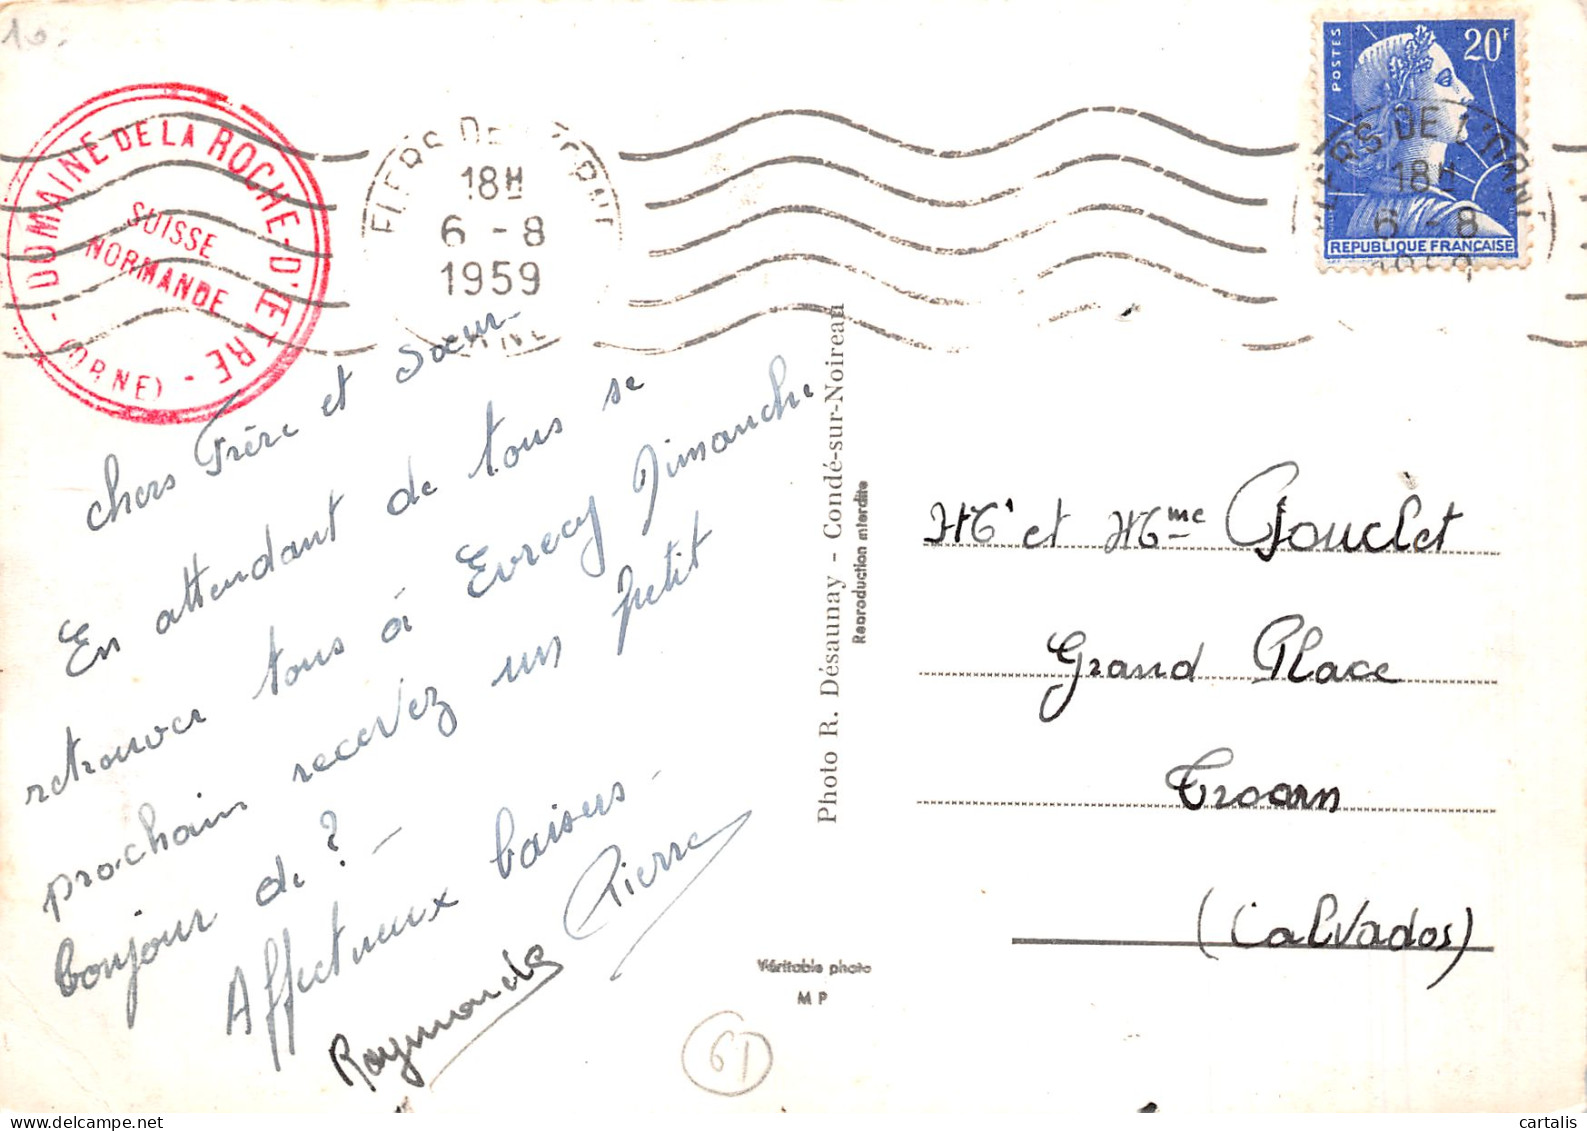 10.
DOMAINE DE LA ROCHE-D'ETRE
SUISSE
NORMANDE
(ORNE)
FLERS DE L'ORNE
18H
6 - 8
1959
ORNE
POSTES
20F
REPUBLIQUE FRANÇAISE
FLERS DE L'ORNE
18H
6 - 8
1959
chers Frère et Sœur-
En attendant de tous se
retrouver tous à Evrecy Dimanche
prochain recevez un petit
bonjour de ? -
Affectueux baisers -
Pierre
Raymonde
Photo R. Désaunay - Condé-sur-Noireau
Reproduction interdite
Véritable photo
M P
61
Mr et Mme Pouclet
Grand Place
Troarn
(Calvados)
cartalis